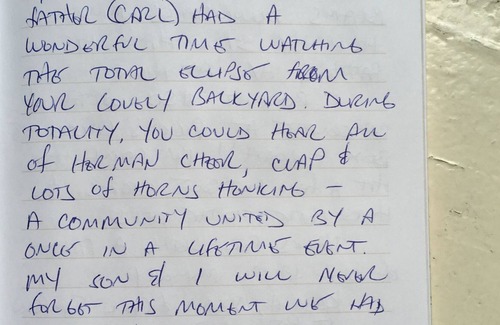 FATHER (CARL) HAD A
WONDERFUL TIME WATCHING
THE TOTAL ECLIPSE FROM
YOUR LOVELY BACKYARD. DURING
TOTALITY, YOU COULD HEAR ALL
OF HERMAN CHEER, CLAP &
LOTS OF HORNS HONKING –
A COMMUNITY UNITED BY A
ONCE IN A LIFETIME EVENT.
MY SON & I WILL NEVER
FORGET THIS MOMENT WE HAD